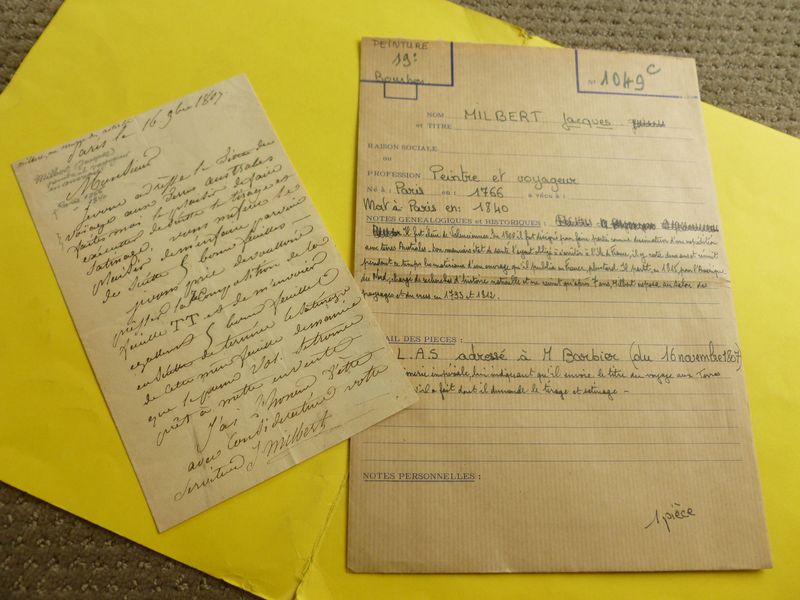 Paris le 16 9bre 1807.
Milbert (Jacques)
Monsieur
Je vous adresse le Titre du
voyage aux Terres Australes
faites moi le plaisir de faire
exécuter de suitte le tirage et
Satinage. vous
plaisir de m'en faire parvenir
de Suitte 5 bonnes feuilles —
je vous prie de vouloir
presser la composition de la
feuille TT et de m'envoyer
5 bonnes feuilles
le Satinage
de cette même feuille
que le premier Vol. se trouve
prêt à mettre en vente
J'ai l'honneur d'être
avec Considération votre
Serviteur J Milbert
PEINTURE
19e
Bourbon
N° 1049 c
NOM
et TITRE MILBERT Jacques
RAISON SOCIALE
ou
PROFESSION Peintre et voyageur
Né à : Paris en : 1766 a vécu à :
Mort à Paris en : 1840
NOTES GENEALOGIQUES et HISTORIQUES :
Il fut élève de Valenciennes. En 1800 il fut désigné pour faire partie comme dessinateur d'une expédition
aux terres Australes. Son mauvais état de santé l'ayant obligé à s'arrêter à l'Ile de France, il y resta deux ans et réunit
pendant ce temps les matériaux d'un ouvrage qu'il publia en France, plus tard. Il partit, en 1815, pour l'Amérique
du Nord, chargé de recherches d'histoire naturelle et ne revint qu'après 7 ans. Milbert exposa au Salon des
paysages et des vues en 1793 et 1812.
AIL DES PIECES :
L.A.S adressé à M Barbier (du 16 novembre 1807)
impériale, lui indiquant qu'il envoie le titre du voyage aux Terres
qu'il a fait dont il demande le tirage et satinage —
NOTES PERSONNELLES :
1 pièce